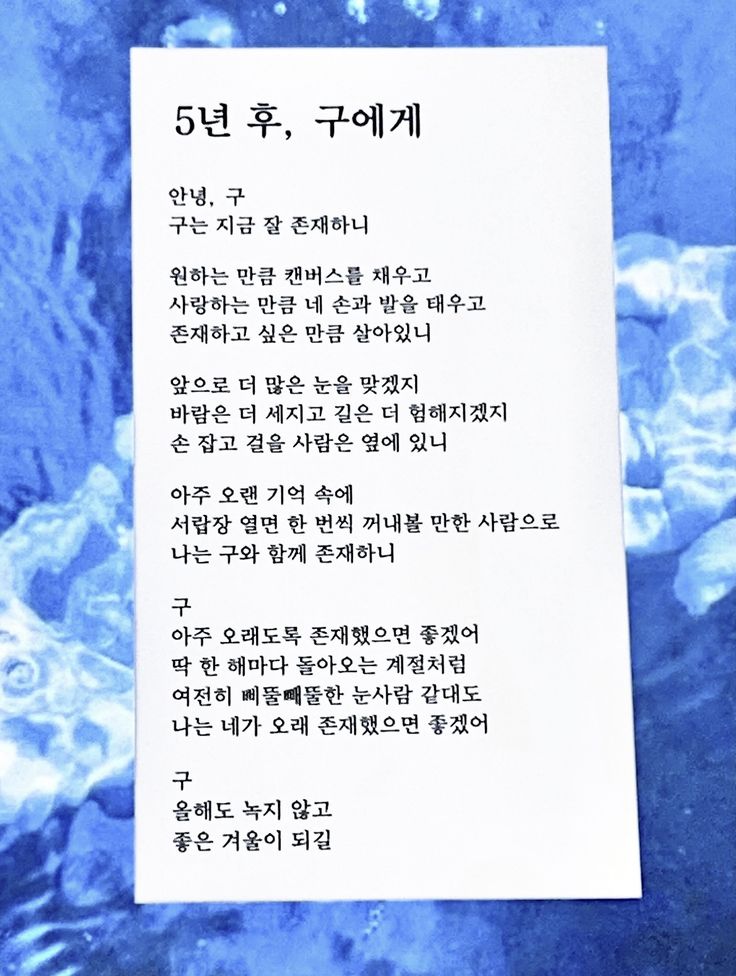 5년 후, 구에게
안녕, 구
구는 지금 잘 존재하니
원하는 만큼 캔버스를 채우고
사랑하는 만큼 네 손과 발을 태우고
존재하고 싶은 만큼 살아있니
앞으로 더 많은 눈을 맞겠지
바람은 더 세지고 길은 더 험해지겠지
손 잡고 걸을 사람은 옆에 있니
아주 오랜 기억 속에
서랍장 열면 한 번씩 꺼내볼 만한 사람으로
나는 구와 함께 존재하니
구
아주 오래도록 존재했으면 좋겠어
딱 한 해마다 돌아오는 계절처럼
여전히 삐뚤빼뚤한 눈사람 같대도
나는 네가 오래 존재했으면 좋겠어
구
올해도 녹지 않고
좋은 겨울이 되길